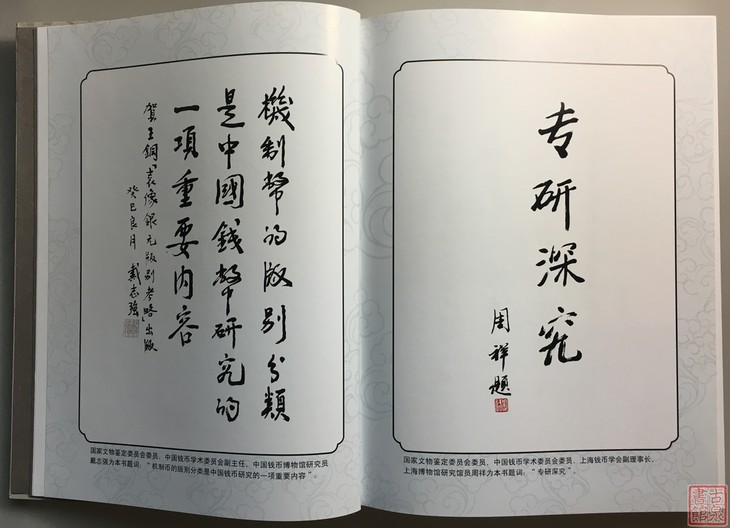 機制幣的版别分類
是中國錢幣研究的
一項重要内容
賀王鋼《袁像銀元版别考略》出版
癸巳良月 戴志強
国家文物鉴定委员会委员、中国钱币学术委员会副主任、中国钱币博物馆研究员
戴志强为本书题词:“机制币的版别分类是中国钱币研究的一项重要内容”。
专研深究
周祥題
国家文物鉴定委员会委员、中国钱币学术委员会委员、上海钱币学会副理事长、
上海博物馆研究馆员周祥为本书题词:“专研深究”。